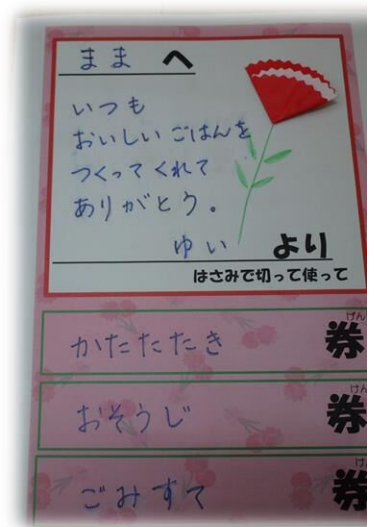 まま へ
いつも
おいしい ごはんを
つくって くれて
ありがとう。
ゆい より
はさみで切って使って
かたたたき 券
げん
おそうじ 券
けん
ごみすて 券